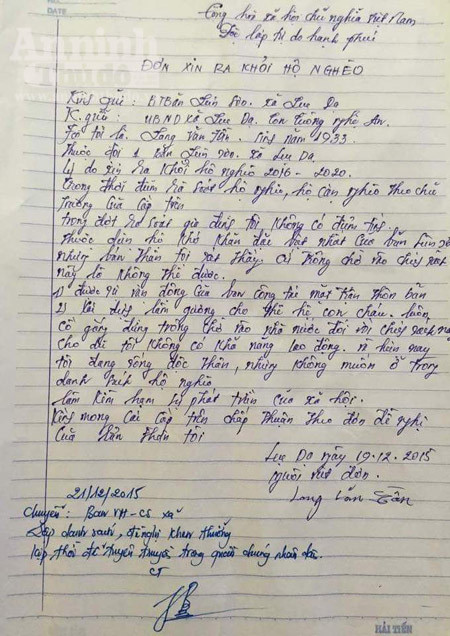 DATE
Cộng hòi xã hòi chủ nghĩa Việt Nam
Độc lập tự do hanh phúc
ĐƠN XIN RA KHỎI HỘ NGHÈO
Kính gửi: BTBan xã Lục Dạ
K. gửi: UBND xã Lục Dạ. Con Cuông Nghệ An.
Tên tôi là. Lang Văn Tần. Sinh năm 1933.
Thuộc đội 1 bản xã Lục Dạ.
Lý do xin Ra Khỏi hộ nghèo 2016 - 2020.
trong thời điểm Rà soát hộ nghèo, hộ cận nghèo theo chủ
trương của cấp trên
trong đợt Rà soát gia đình tôi không có điểm
thuộc diện hộ khó khăn đặc biệt nhất của bản
nhưng bản thân tôi xét thấy. cứ trông chờ vào
này là không thể được.
1) được sự vận động của ban công tác mặt trận thôn bản
2) làm gương cho thế hệ con cháu. luôn
cố gắng đừng trông chờ vào nhà nước đối với
cho dù tôi không có khả năng lao động. hiện nay
tôi đang sống độc thân, nhưng không muốn ở trong
danh hộ nghèo
làm kìm hạm sự phát triển của xã hội.
Kính mong các cấp trên chấp thuận theo đơn đề nghị
của bản thân tôi
Lục Dạ ngày 19.12.2015
người viết đơn.
Lang Văn Tần
21/12/2015
Chuyển: Ban VH-CS xã
Lập danh sách, đề nghị khen thưởng
kịp thời để tuyên truyền trong quần chúng nhân dân.
CT
HẢI TIẾN